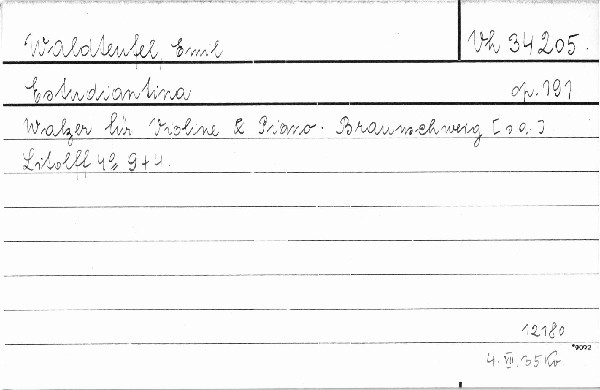 Waldteufel, Emil
Vh 34205.
Estudiantina op. 191
Walzer für Violine & Piano. Braunschweig [s a.]
Litolff 4° 9+4.
12180
4. VII. 35 Ko
*9002